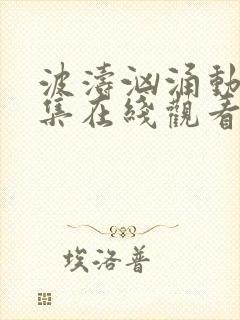 波濤汹涌動
集在綫觀看
埃洛普